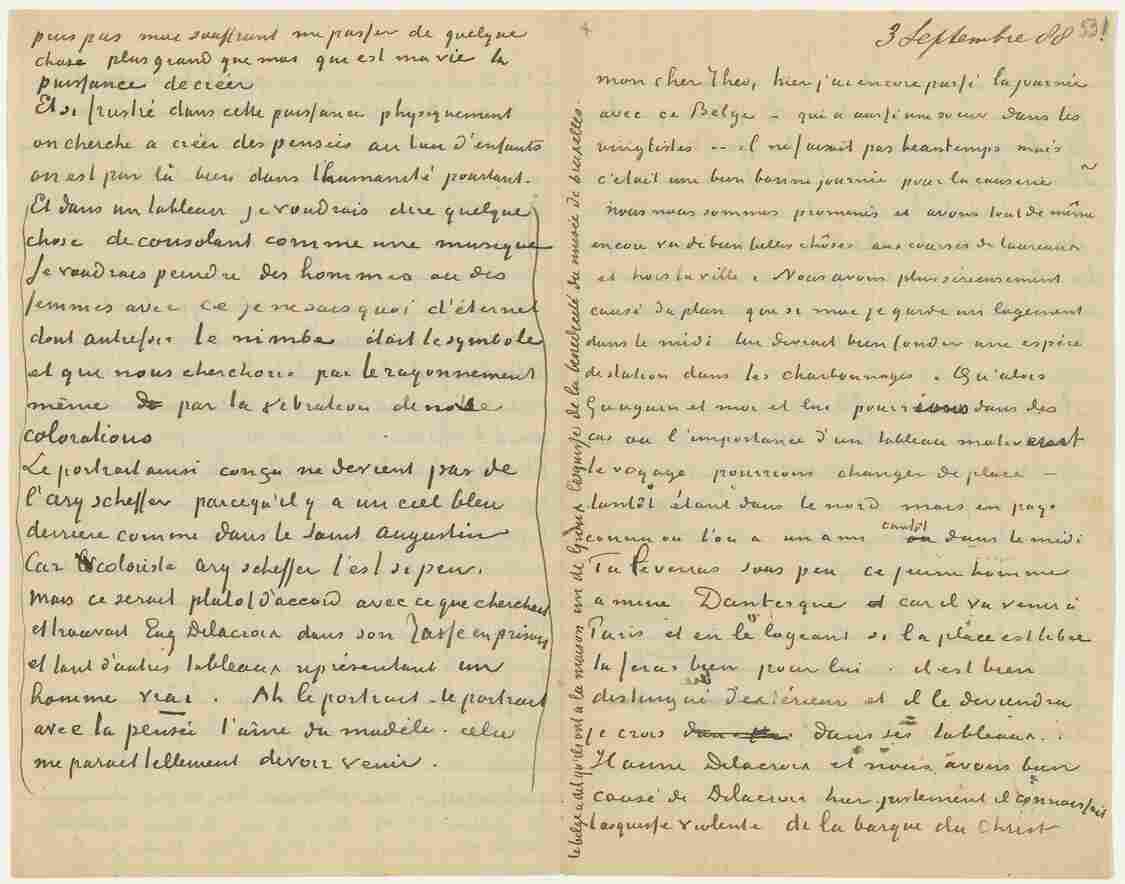 peux pas moi souffrant me passer de quelque
chose plus grand que moi qui est ma vie la
puissance de créer
Et si frustré dans cette puissance physiquement
on cherche a créer des pensées au lieu d'enfants
on est par là bien dans l'humanité pourtant.
Et dans un tableau je voudrais dire quelque
chose de consolant comme une musique
Je voudrais peindre des hommes ou des
femmes avec ce je ne sais quoi d'éternel
dont autrefois le nimbe était le symbole
et que nous cherchons par le rayonnement
même par la vibration de nos
colorations
Le portrait ainsi conçu ne devient pas de
l'ary scheffer parcequ'il y a un ciel bleu
derrière comme dans le Saint Augustin
Car coloriste ary scheffer l'est si peu.
Mais ce serait plutot d'accord avec ce que cherchait
et trouvait Eug Delacroix dans son Tasse en prison
et tant d'autres tableaux représentant un
homme vrai. Ah le portrait – le portrait
avec la pensée l'ame du modèle. cela
me parait tellement devoir venir.
3 Septembre 88
mon cher Theo, hier j'ai encore passé la journée
avec ce Belge – qui a aussi une soeur dans les
vingtistes -- il ne faisait pas beau temps mais
c'était une bien bonne journée pour la causerie
nous nous sommes promenés et avons tout de même
encore vu de bien belles chôses aux courses de taureaux
et hors la ville. Nous avons plus sérieusement
causé du plan que si moi je garde un logement
dans le midi lui devrait bien fonder une espèce
de station dans les charbonnages. Qu'alors
Gauguin et moi et lui pourrions dans des
cas ou l'importance d'un tableau motiverait
le voyage pourrions changer de place –
tantôt étant dans le nord mais en pays
connu ou l'on a un ami tantôt dans le midi
Tu le verras sous peu ce jeune homme
a mine Dantesque car il va venir à
Paris et en le logeant si la place est libre
tu feras bien pour lui. il est bien
distingué d'extérieur et il le deviendra
je crois dans ses tableaux.
Il aime Delacroix et nous avons bien
causé de Delacroix hier. justement il connaissait
l'esquisse violente de la barque du Christ
le belge a dit qu'ils ont a la maison un de Groux l'esquisse de la bénédicité du musée de bruxelles.